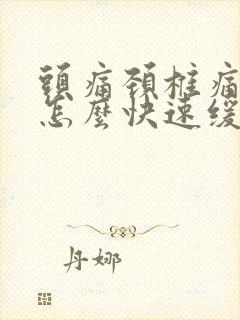 頭痛頚椎痛
怎麼快速緩
丹娜